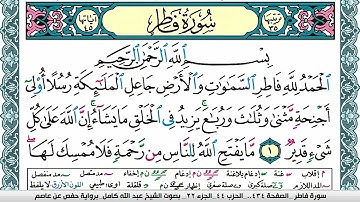 سُورَةُ فَاطِرٍ
ترتيبها ٣٥
آياتها ٤٥
بِسْمِ ٱللَّهِ ٱلرَّحْمَٰنِ ٱلرَّحِيمِ
ٱلْحَمْدُ لِلَّهِ فَاطِرِ ٱلسَّمَٰوَٰتِ وَٱلْأَرْضِ جَاعِلِ ٱلْمَلَٰٓئِكَةِ رُسُلًا أُو۟لِىٓ
أَجْنِحَةٍ مَّثْنَىٰ وَثُلَٰثَ وَرُبَٰعَ ۚ يَزِيدُ فِى ٱلْخَلْقِ مَا يَشَآءُ ۚ إِنَّ ٱللَّهَ عَلَىٰ كُلِّ
شَىْءٍ قَدِيرٌ ١ مَّا يَفْتَحِ ٱللَّهُ لِلنَّاسِ مِن رَّحْمَةٍ فَلَا مُمْسِكَ لَهَا ۖ
سورة فاطر الصفحة ٤٣٤.. الحزب ٤٤ الجزء ٢٢.. بصوت الشيخ عبد الله كامل.. برواية حفص عن عاصم